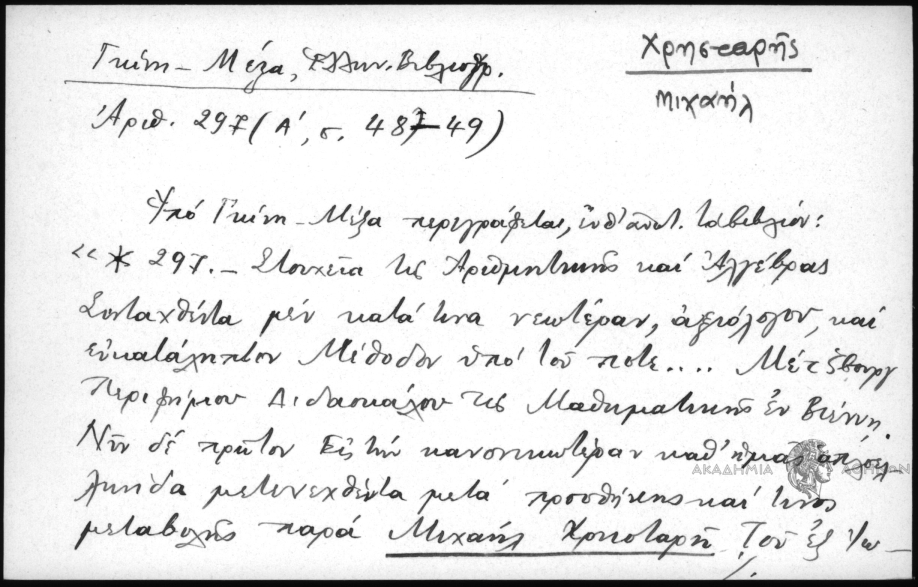 Χρησταρῆς
Μιχαήλ
Γκίνη - Μέξα, Ἑλλην. Βιβλιογρ.
Ἀριθ. 297 (Α', σ. 48-49)
Ὑπό Γκίνη - Μέξα περιγράφεται, τό βιβλίον:
«* 297. - Στοιχεῖα τῆς Ἀριθμητικῆς καί Ἀλγέβρας
Συνταχθέντα μέν κατά τινα νεωτέραν, ἀξιόλογον, καί
εὐκατάληπτον Μέθοδον ὑπό τοῦ ποτε.... Μέτσβουργ
Περιφήμου Διδασκάλου τῆς Μαθηματικῆς ἐν Βιέννῃ.
Νῦν δέ πρῶτον Εἰς τήν κανονικωτέραν καθ' ἡμᾶς ἁπλοελ-
ληνίδα μετενεχθέντα μετά προσθήκης καί τινος
μεταβολῆς παρά Μιχαήλ Χρησταρῆ Τοῦ ἐξ Ἰω-
ΑΚΑΔΗΜΙΑ ΑΘΗΝΩΝ